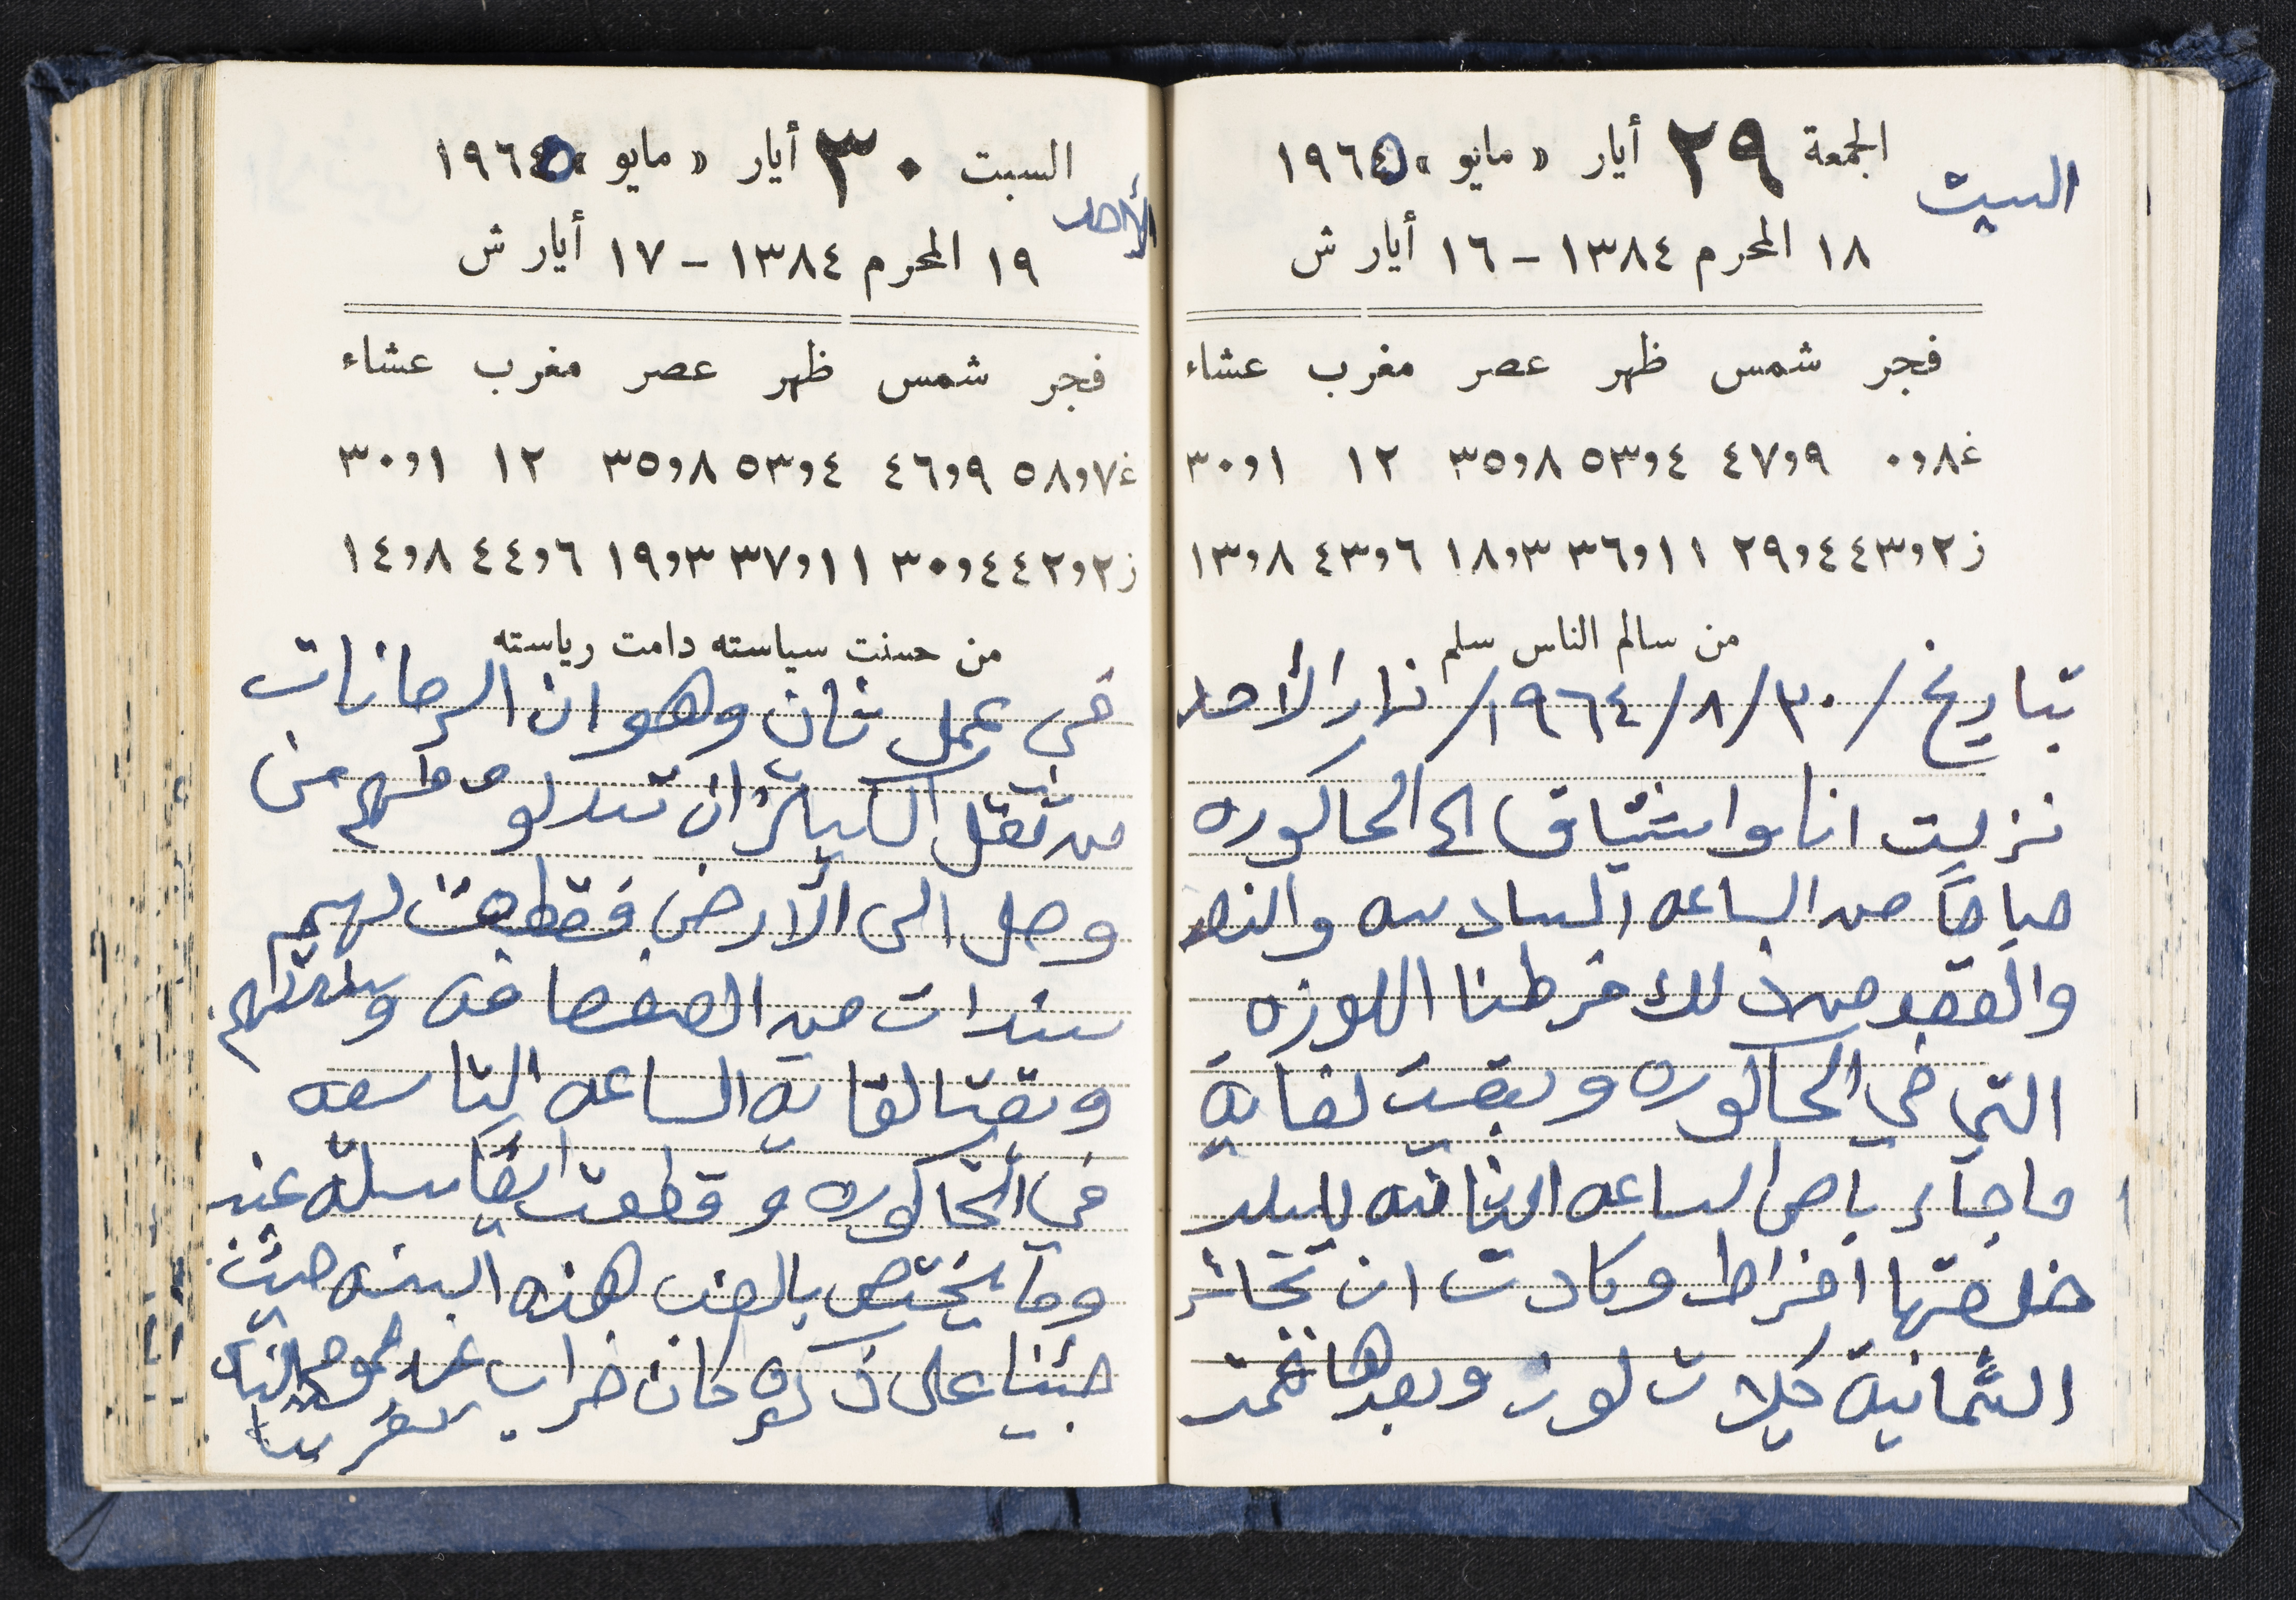 السبت
الجمعة ٢٩ أيار « مايو » ١٩٦٥
١٨ المحرم ١٣٨٤ - ١٦ أيار ش
فجر شمس ظهر عصر مغرب عشاء
غ٨و٠ ٤٧و٩ ٥٣و٤ ٣٥و٨ ١٢ ٣٠و١
ز٢و٤٣ ٢٩و٤ ٣٦و١١ ١٨و٣ ٤٣و٦ ١٣و٨
من سالم الناس سلم
بتاريخ /٣٠/٨/١٩٦٤/ نهار الأحد
نزلت انا واشتياق الى الحاكوره
صباحاً من الساعه السادسه والنصف
والقصد من ذلك فرطنا اللوزه
التي في الحاكوره وبقيت لغاية
ما جاء باص الساعه الثانيه للبلد
خلصتها افراط وكادت ان تجائر
الثمانية كيلات لوز وبعدها قمت
السبت ٣٠ أيار « مايو » ١٩٦٥
الأحد
١٩ المحرم ١٣٨٤ - ١٧ أيار ش
فجر شمس ظهر عصر مغرب عشاء
غ٧و٥٨ ٤٦و٩ ٥٣و٤ ٣٥و٨ ١٢ ٣٠و١
ز٢و٤٢ ٣٠و٤ ٣٧و١١ ١٩و٣ ٤٤و٦ ١٤و٨
من حسنت سياسته دامت رياسته
في عمل ثان وهو ان الرمانات
من ثقل الكيزان تدلو ومنهم من
وصل الى الأرض فقطعت لهم
سندات من الصفصافه وسندتهم
وبقيت لغاية الساعه التاسعه
في الحاكوره وقطعت ايضاً سلة عنب
وما يختص بالعنب هذه السنه حيث
جئنا على ذكره كان خراب عن
تقريباً